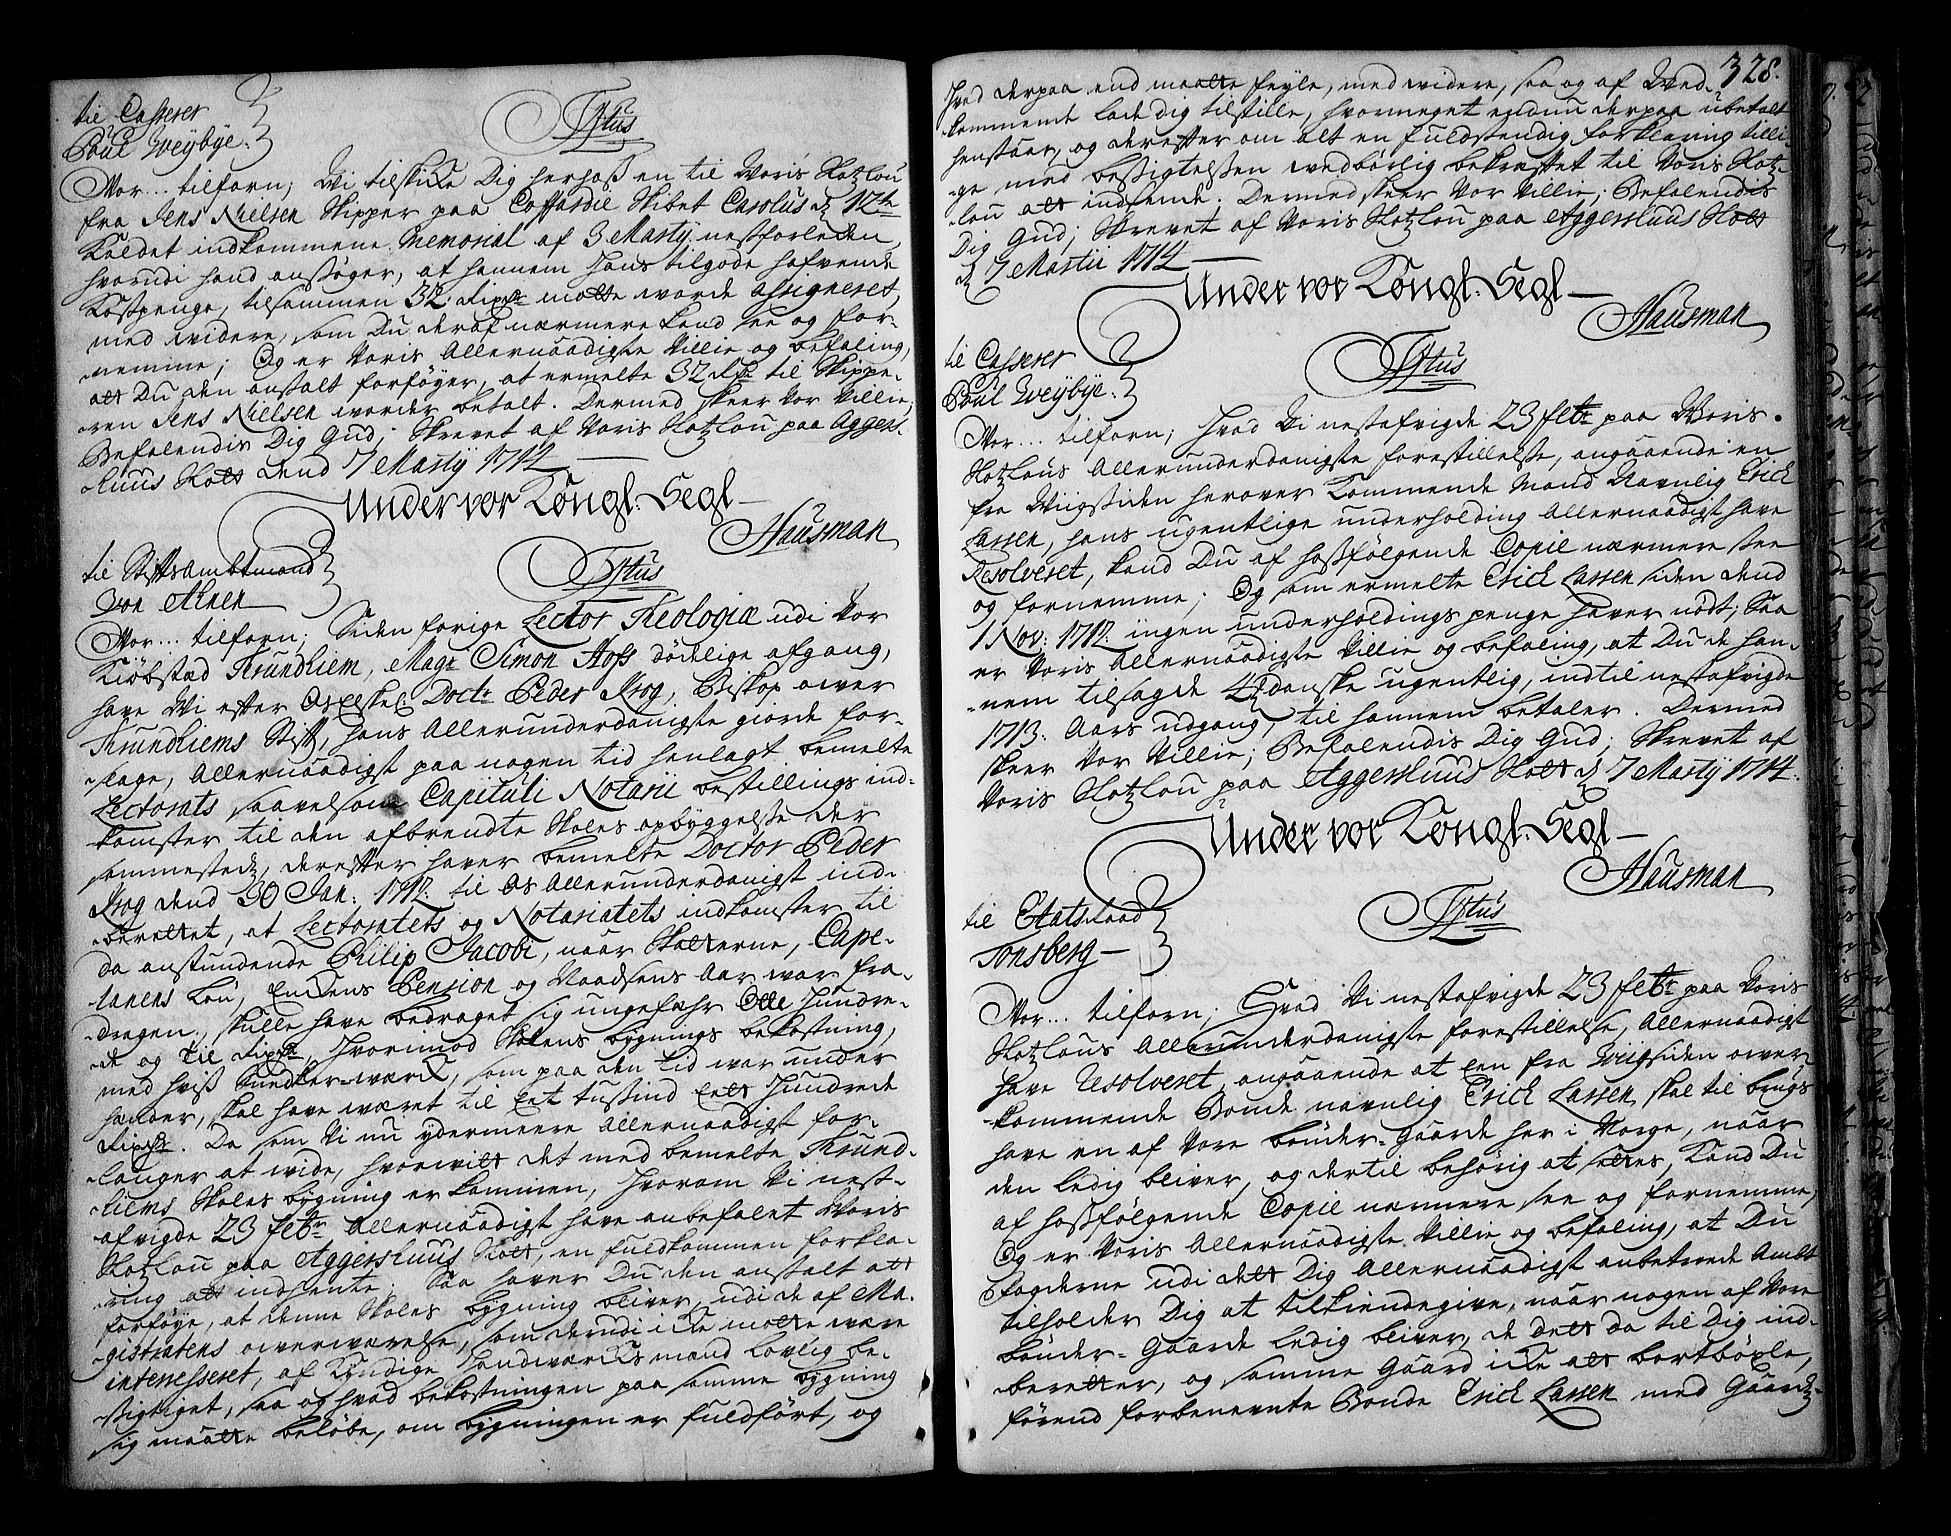 til Casserer
Poul Weybye.
Titus
Vor... tilforn; Wi tilskicke Dig herhoß en til Woris Slotzlou
fra Jens Nielsen Skipper paa Coffardie Skibet Carolus d. 12te
kaldet indkommene Memorial af 3 Martij nestforleden,
hvorudi hand ansøger, at hannem hans tilgode hafvende
kostpenge, tilsammen 32 Rixdr motte worde assigneret,
med widere, som Du deraf nærmere kand see og for-
nemme; Og er Voris Allernaadigste Villie og befaling,
att Du den anstalt forføyer, at ermelte 32 Rdr til Skippe-
ren Jens Nielsen worder betalt. Dermed skeer Vor Villie;
Befalendis Dig Gud; Skrevet af Voris Slotzlou paa Aggers-
huus Slott dend 7 Martij 1714
Under vor Kongl: Segl
Hausman
til Stiftsambtmand
von Ahnen
Titus
Vor... tilforn; Siden forige Lector Theologiæ udi Vor
Kiøbstæd Trundhiem, Magr Simon Hofs dødelige afgang,
have Wi efter Os elskel: Doctr Peder Krog, Biskop over
Trundhiems Stift, hans Allerunderdanigste giorde for-
slage, Allernaadigst paa nogen tid henlagt bemelte
Lectorats saavelsom Capituli Notarii bestillings ind-
komster til den afbrendte Skoles opbyggelse der
sammestedz, derefter haver bemelte Doctor Peder
Krog dend 30 Jan: 1712 til Os Allerunderdanigst ind-
berettet, at Lectoratets og Notariatets indkomster til
da anstundende Philip Jacobi, naar Skatterne, Cape-
lanens løn, Enckens Pension og Naadsens Aar war fra-
dragen, skulle have bedraget sig ungefæhr Otte hundre-
de og tie Rixdr, hvorimod Skolens bygnings bekostning,
med hviß Snedker-werck, som paa den tid war under
hænder, skal have wæret til Eet tusind Eett hundrede
Rixdr. Da som Vi nu ydermeere Allernaadigst for-
langer at wide, hvorwitt det med bemelte Trund-
hiems Skoles bygning er kommen, hvorom Vi nest-
afvigde 23 febr Allernaadigst have anbefalet Woris
Slotzlou paa Aggershuus Slott, en fuldkommen forkla-
ring att indhente; Saa haver Du den anstalt att
forføye, at denne Skoles bygning bliver, udi de af Ma-
gistratens overwærelse, som derudi icke motte være
interresseret, af kyndige Handwærcksmænd lovlig be-
sigtiget, saa og hvad bekostningen paa samme bygning
sig maatte beløbe, om bygningen er fuldført, og
328.
hvad derpaa end maatte feyle, med widere, saa og af Wed-
kommende lade dig tilstille, hvormeget endnu derpaa ubetalt
henstaar, og derefter om alt en fuldstendig forklaring tilli-
ge med besigtelsen wedbørlig bekræftet til Voris Slotz-
lou att indsende. Dermed skeer Vor Villie; Befalendis
Dig Gud; Skrevet af Voris Slotzlou paa Aggershuus Slott
d. 7 Martii 1714
Under vor Kongl: Segl
Hausman
til Casserer
Poul Weybye.
Titus
Vor... tilforn; Hvad Vi nestafvigde 23 febr paa Woris
Slotzlous Allerunderdanigste forestillelse, angaaende en
fra Wiigsiden herover kommende Mand Navnlig Erich
Lassen, hans ugentlige underholding Allernaadigst have
Resolveret, kand Du af hoßfølgende Copie nærmere see
og fornemme; Og som ermelte Erich Lassen siden dend
1 Nov: 1712 ingen underholdings penge haver nødt; Saa
er Voris Allernaadigste Villie og befaling, at Du de han-
nem tilsagde 4 danske ugentlig, indtil nestafvigte
1713 Aars udgang, til hannem betaler. Dermed
skeer Vor Villie; Befalendis Dig Gud; Skrevet af
Voris Slotzlou paa Aggershuus Slott d. 7 Martij 1714.
Under vor Kongl: Segl
Hausman
til Etatsraad
Tonsberg
Titus
Vor... tilforn; Hvad Vi nestafvigde 23 febr paa Voris
Slotzlous Allerunderdanigste forestillelse, Allernaadigst
have Resolveret, angaaende at een fra Wiigsiden over-
kommende Bonde navnlig Erich Lassen, skal til brugs
have en af Vore bønder-Gaarde her i Norge, naar
den ledig bliver, og dertil behørig at settes, kand Du
af hoßfølgende Copie nærmere see og fornemme,
Og er Voris Allernaadigste Villie og befaling, at Du
fogderne udi dett Dig Allernaadigst anbetroede Ambt
tilholder Dig at tilkiendegive, naar nogen af Vore
bønder-Gaarde ledig bliver, de dett da til Dig ind-
beretter, og samme Gaard icke att bortbøxle,
førend forbenevnte Bonde Erich Lassen med Gaardz-